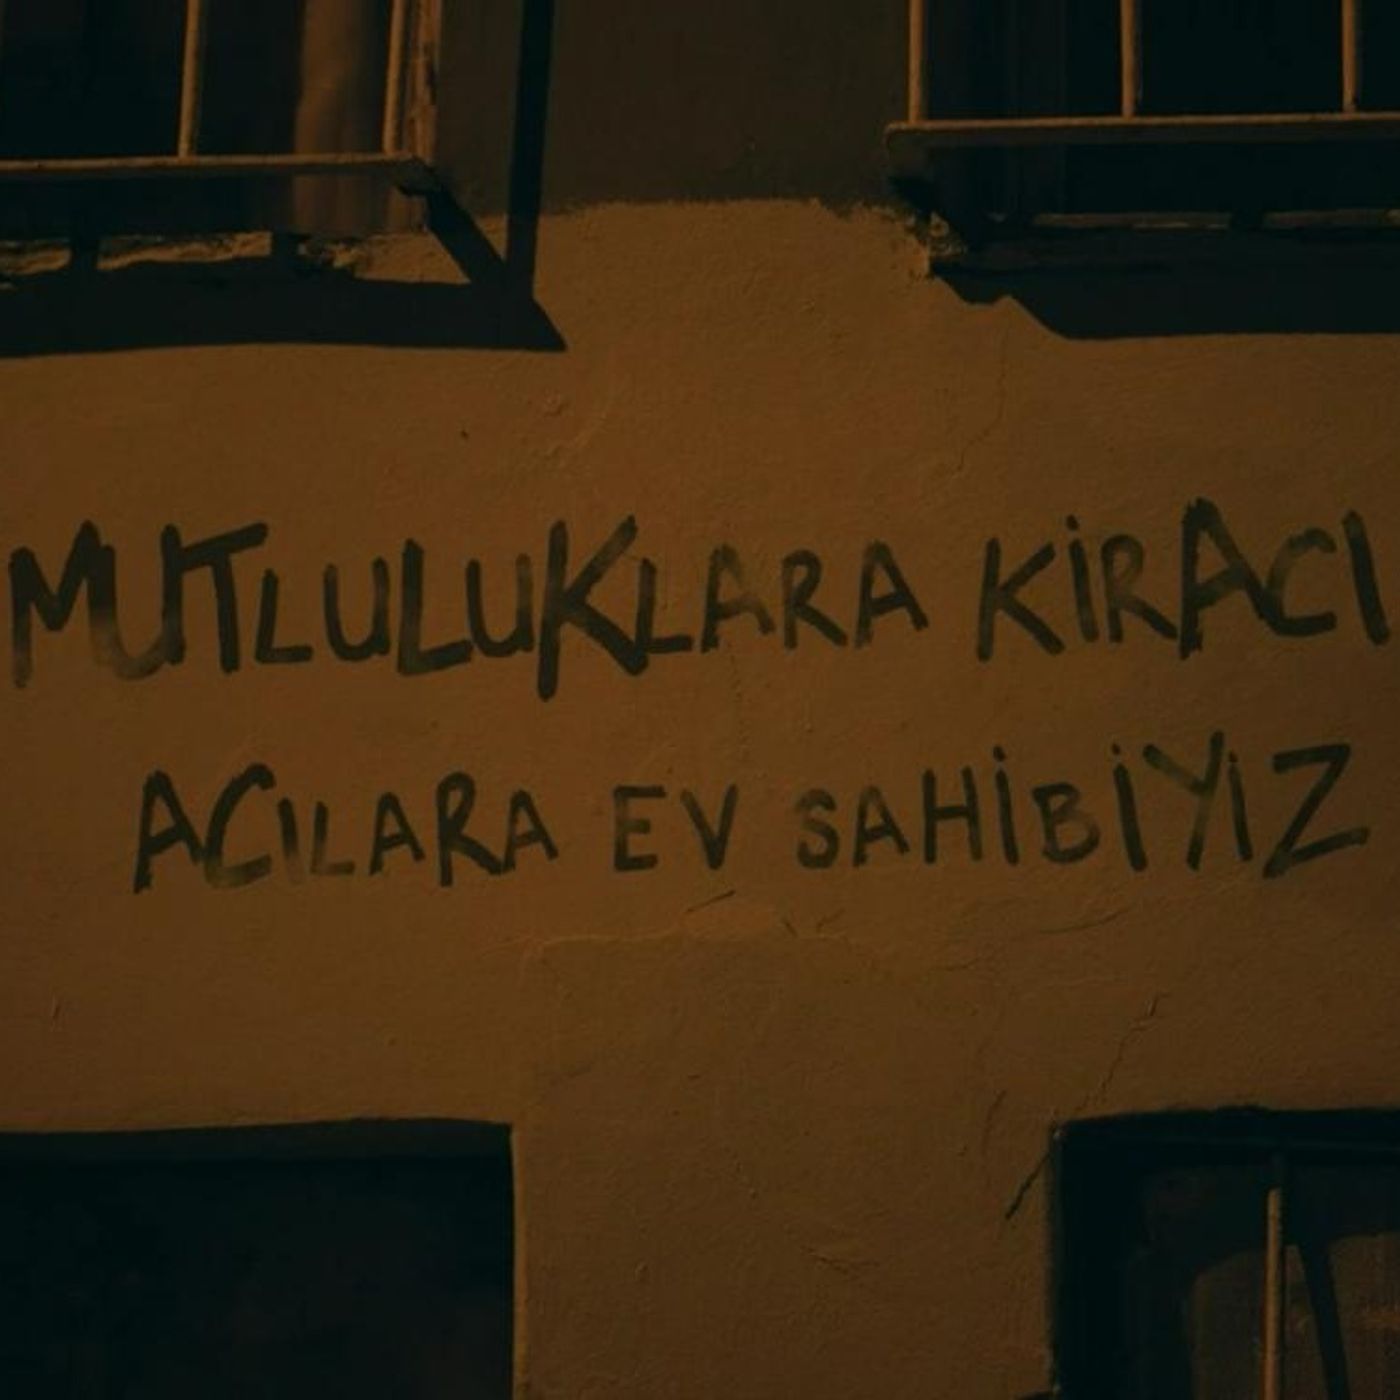 MUTLULUKLARA KİRACI
ACILARA EV SAHİBİYİZ